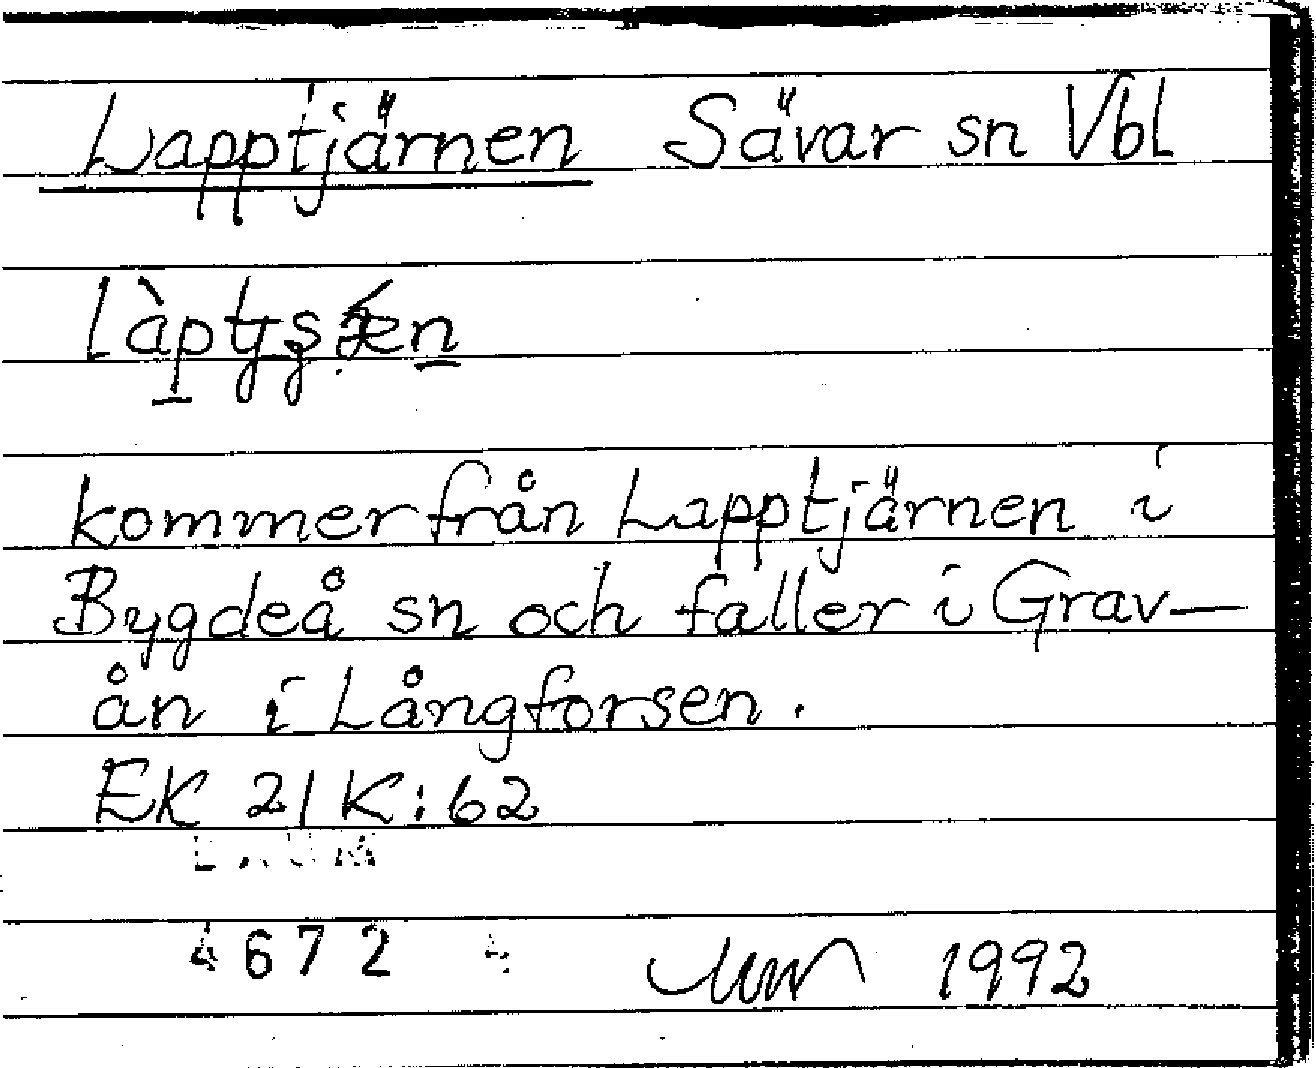 Lapptjärnen Sävar sn Vbl
kommer från Lapptjärnen i
Bygdeå sn och faller i Grav-
ån i Långforsen.
EK 21 K:62
4672
1992